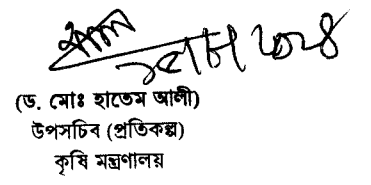 (ড. মোঃ হাতেম আলী)
উপসচিব (প্রতিকল্প)
কৃষি মন্ত্রণালয়